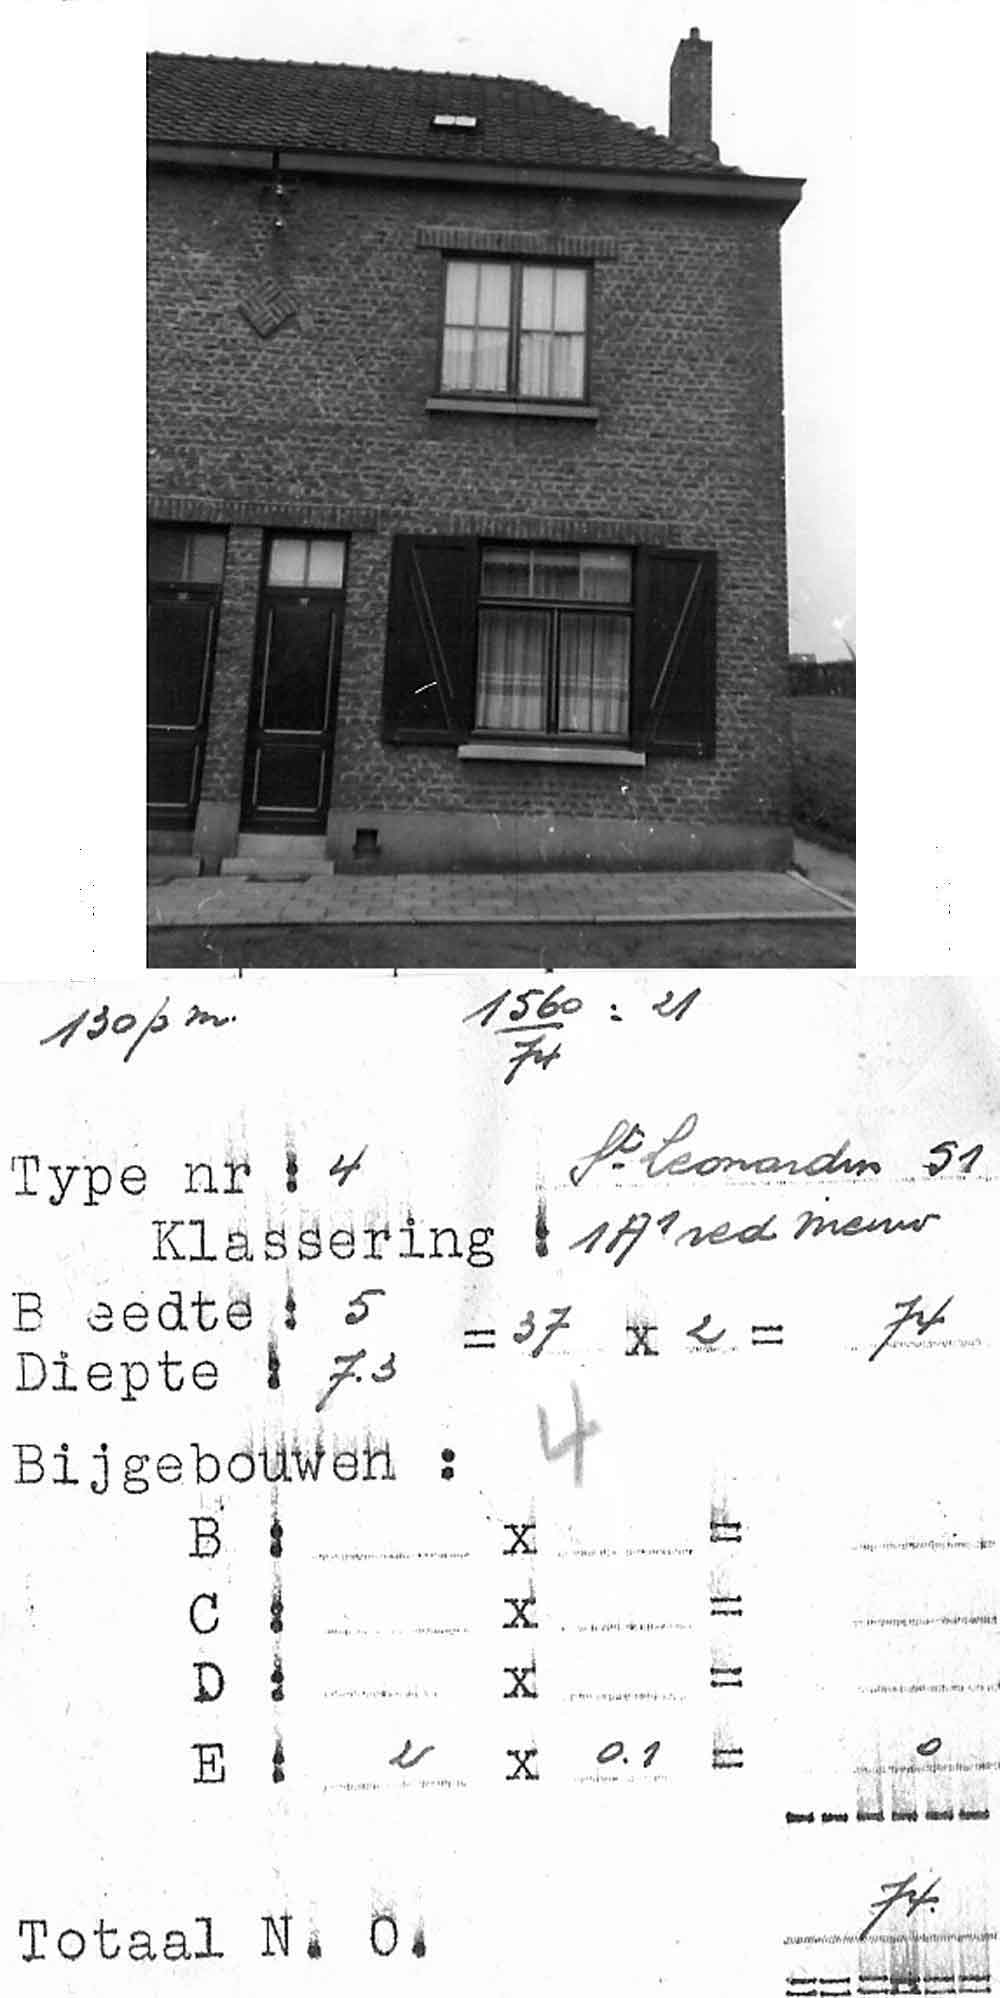 130 p m.
1560 : 21
74
Type nr : 4 St. Leonardus 51
Klassering : 1A1 red nieuw
B eedte : 5
= 37 x 2 = 74
Diepte : 7.3
4
Bijgebouwen :
B : x =
C : x =
D : x =
E : 2 x 0.1 = 0
74.
Totaal N. O.